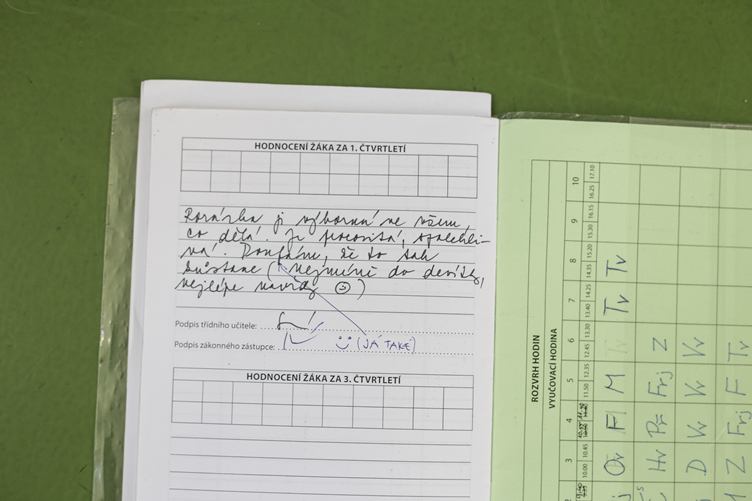 HODNOCENÍ ŽÁKA ZA 1. ČTVRTLETÍ
je výborná ve všem,
co dělá. Je pracovitá, spolehli-
vá. Doufám, že to tak
zůstane (nejméně do deváté,
nejlépe navždy ☺)
Podpis třídního učitele:
Podpis zákonného zástupce: ☺ (JÁ TAKÉ)
HODNOCENÍ ŽÁKA ZA 3. ČTVRTLETÍ
ROZVRH HODIN
VYUČOVACÍ HODINA
3 4 5 6 7 8 9 10
10.00 10.45 11.50 12.35 12.45 13.30 13.40 14.25 14.35 15.20 15.30 16.15 16.25 17.10
Ov F M Tv Tv
Hv Př Frj Z
D Vv Vv Vv
Z Frj F Tv